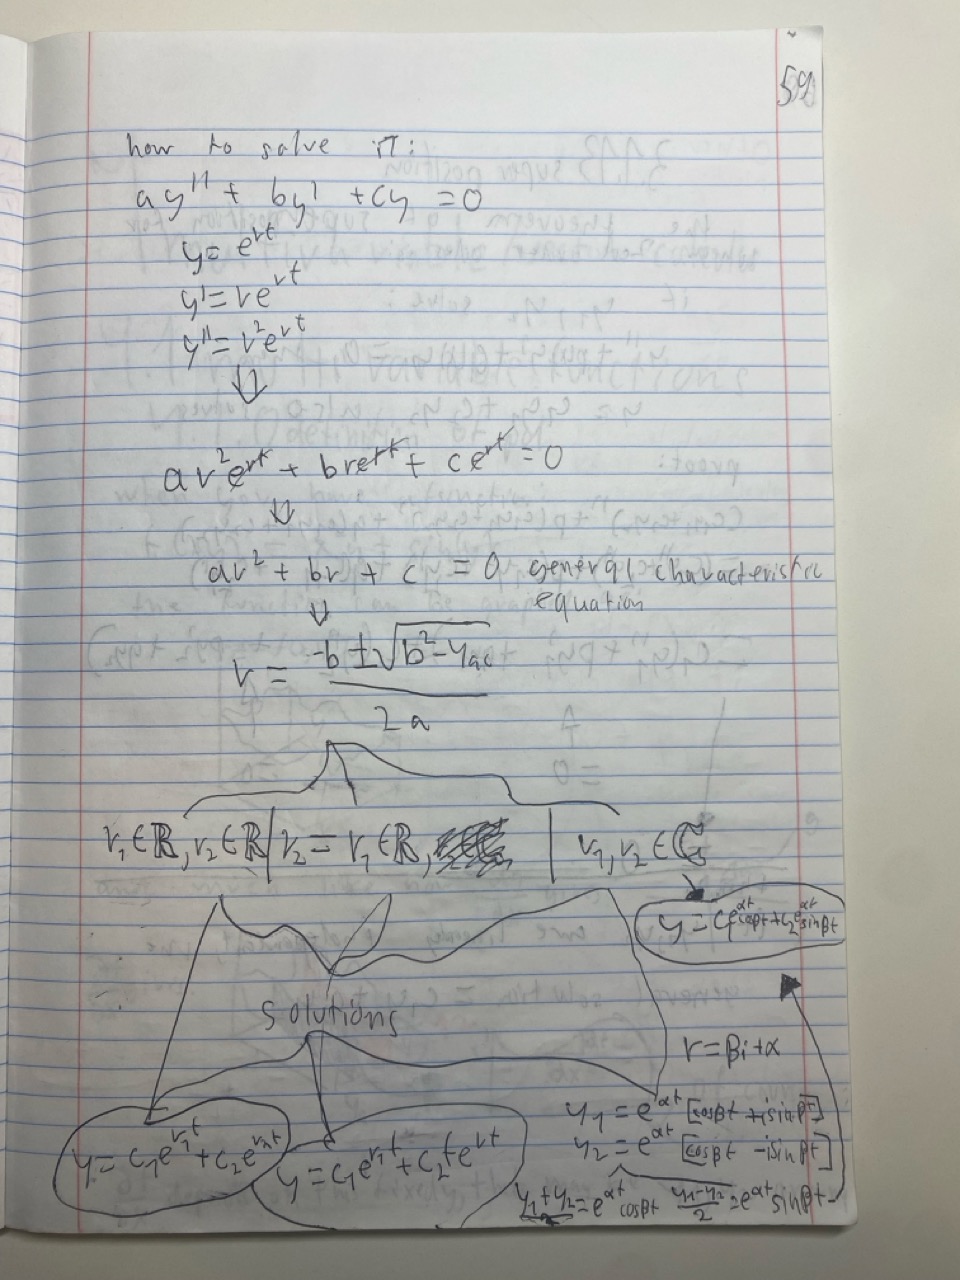 59
how to solve it:
ay'' + by' + cy = 0
y = e^{rt}
y' = re^{rt}
y'' = r^2e^{rt}
⇓
ar^2e^{rt} + bre^{rt} + ce^{rt} = 0
⇓
ar^2 + br + c = 0 general characteristic
equation
⇓
r = \frac{-b ± \sqrt{b^2-4ac}}{2a}
r_1 ∈ ℝ, r_2 ∈ ℝ | r_2 = r_1 ∈ ℝ, | r_1, r_2 ∈ ℂ
y = C_1e^{αt}cosβt + C_2e^{αt}sinβt
Solutions
r = βi + α
y_1 = e^{αt} [cosβt + isinβt]
y_2 = e^{αt} [cosβt - isinβt]
y = C_1e^{r_1t} + C_2e^{r_2t}
y = C_1e^{r_1t} + C_2te^{rt}
\frac{y_1+y_2}{2} = e^{αt}cosβt \frac{y_1-y_2}{2} = e^{αt}sinβt